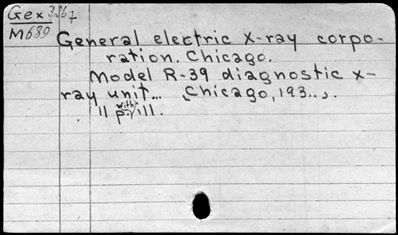 Gex 3367
M689
General electric X-ray corpo-
ration. Chicago.
Model R-39 diagnostic x-
ray unit... [Chicago, 193..].
11 p. with ill.